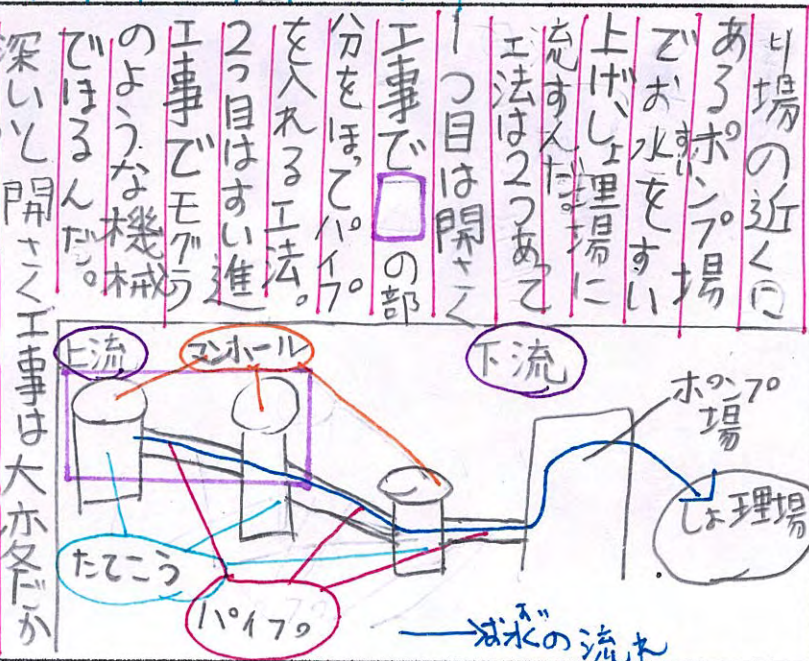 り場の近くに
あるポンプ場
でお水をすい
すい
上げ、しょ理場に
流すんだ。
工法は2つあって
1つ目は開さく
工事で□の部
分をほってパイプ
を入れる工法。
2つ目はすい進
工事でモグラ
のような機械
でほるんだ。
深いと開さく工事は大変だか
上流
マンホール
下流
ポンプ場
しょ理場
たてこう
パイプ
の流れ